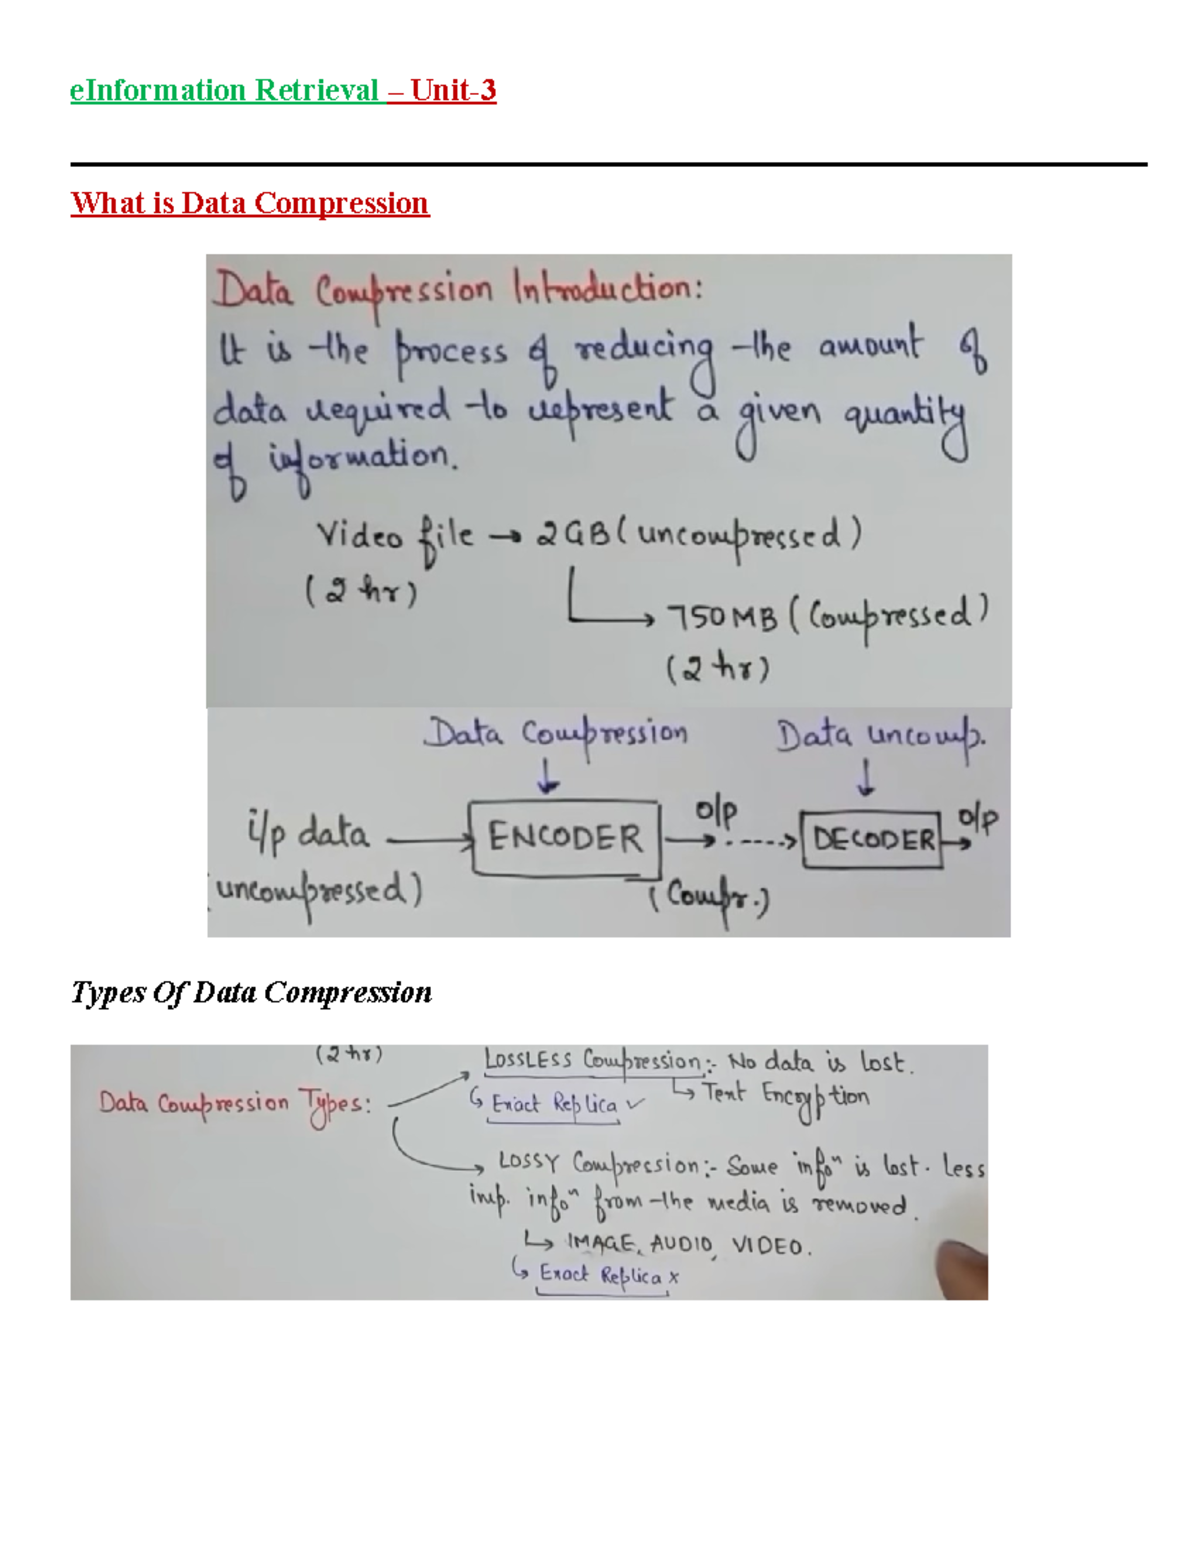 eInformation Retrieval – Unit-3
What is Data Compression
Data Compression Introduction:
It is the process of reducing the amount of
data required to represent a given quantity
of information.
Video file → 2GB (uncompressed)
(2 hr)
→ 750MB (Compressed)
(2 hr)
Data Compression
Data uncomp.
i/p data
ENCODER
o/p
DECODER
o/p
(uncompressed)
(Compr.)
Types Of Data Compression
(2 hr)
LOSSLESS Compression:- No data is lost.
Data Compression Types:
Exact Replica ✓
Text Encryption
LOSSY Compression:- Some infoⁿ is lost. Less
imp. infoⁿ from the media is removed.
IMAGE, AUDIO, VIDEO.
Exact Replica x